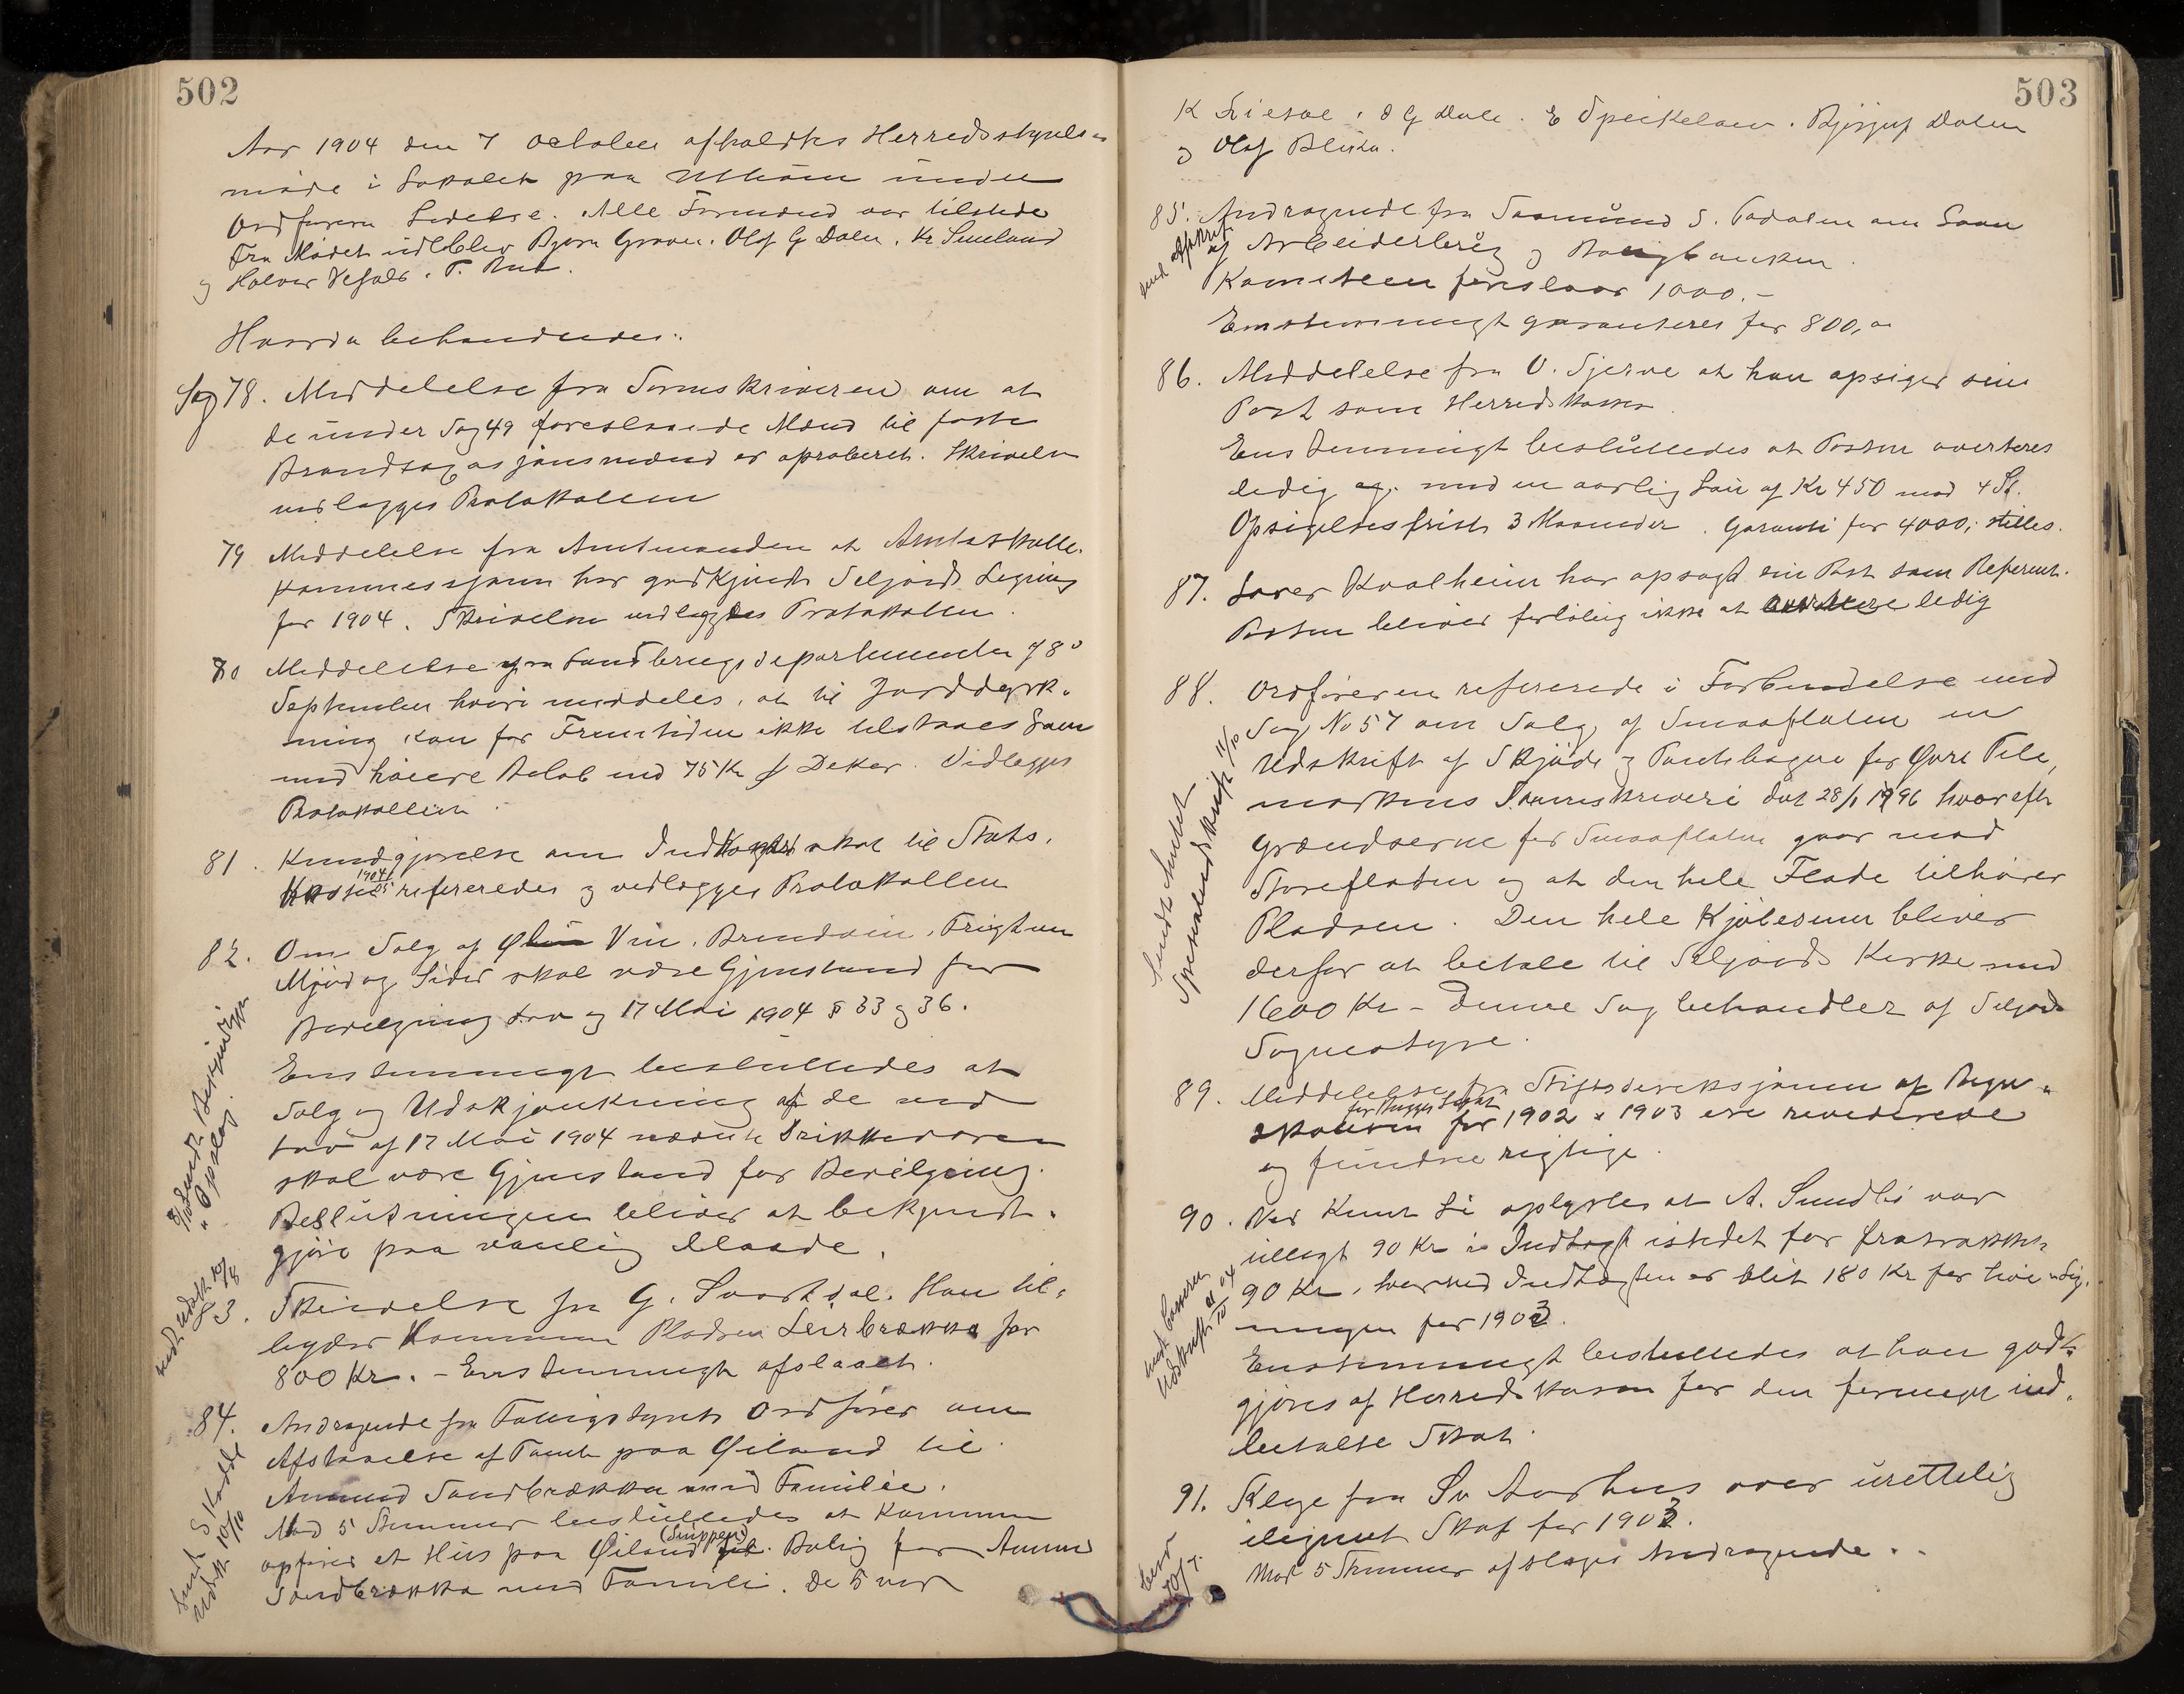 502
Aar 1904 den 7 october afholdtes Herredsstyrels
möde i Lokalet paa under
Ordførern Ledelse. Alle Formænd var tilstede
Fra Mödet udeblev Bjørn Groven. Olof G Dalen. Kr
og Halvor T.
Hvorda behandledes:
Sag 78. Meddelelse fra Sorenskriveren om at
de under Sag 49 foreslaaede Mænd til faste
er aproberet. Skrivelsen
vedlægges Protokollen
79 Meddelelse fra Amtmanden at Amtsskatte-
kommissjonen har godkjendt Seljords Ligning
for 1904. Skrivelsen vedlægges Protokollen.
80 Meddelelse fra Landbrugsdepartementet af 8de
September hvori meddeles, at til Jorddyrk-
ning kan for Fremtiden ikke tilstaaes Laan
med höiere Beløb end 75 Kr pr Dekar. Vidlegges
Protokollen.
81. Kundgjørelse om Indtægtsskat til Stats-
kassen 1904/05 refereredes og vedlægges Protokollen
82. Om Salg af Øl Vin. Brendvin. Frugtvin
Mjød og Sider skal være Gjenstand for
Bevilgning Lov af 17 Mai 1904 § 33 og 36.
Enstemmigt besluttedes at
Salg og Udskjænkning af de ved
Lov af 17 Mai 1904 nævnte Drikkevarer
skal være Gjenstand for Bevilgning.
Beslutningen bliver at bekjendt-
gjøre paa vanlig Maade.
83. Skrivelse fra G. Svartdal. Han til-
byder Kommunen Pladsen Leirbrækka for
800 Kr. - Enstemmigt afslaaet.
84. Andragende fra Fattigstyrets Ordfører om
Afstaaelse af Tomt paa Øiland til
Amund Sandbrækka med Familie.
Mod 5 Stemmer besluttedes at Kommunen
opfører et Hus paa Øiland (Snippen) Bolig for Amund
Sandbrækka med Familie. De 5 var
Udsendt Bekjendtgj
" Opslag.
sendt Udskr 10/8
Sendt
Udskr 10/10
503
K Liesve. O G Dale. E Speikeland. Bjørgulf Dalen
og Olaf Blika.
85. Andragende fra Saamund S. Tadalen om Laan
af Arbeiderbrug og Boligbanken.
Kometeen foreslaar 1000.-
Enstemmigt garanteres for 800,00
86. Meddelelse fra O. Sjerve at han opsiger sin
Post som Herredskasser.
Enstemmigt besluttedes at Posten averteres
ledig med en aarlig Løn af Kr 450 mod
Opsigelsesfrist 3 Maaneder. Garanti for 4000,- stilles.
87. Lærer Kvalheim har opsagt sin Post som Referent.
Posten bliver forløbig ikke at avertere ledig
88. Ordføreren refererede i Forbindelse med
Sag No 57 om Salg af Smaaflaten en
Udskrift af Skjøde og Pantebogen for Øvre Tele-
markens Sorenskriveri dat 28/1 1796 hvorefter
Grændserne for Smaaflaten gaar mod
Storefladen og at den hele Flade tilhører
Pladsen. Den hele Kjøbesum bliver
derfor at betale til Seljords Kirke med
1600 Kr - Denne Sag behandles af Seljord
Sognestyre.
89. Meddelelse fra Stiftsdireksjonen af Regn-
skaberne for 1902 & 1903 ere reviderede
og fundne rigtige.
90. Ved Knut Li oplystes at A. Sundbø var
tillagt 90 Kr i Indtægt istedet for fratrukket
90 Kr, hvorved Indtægten er blit 180 Kr for høi i Lig-
ningen for 1903.
Enstemmigt besluttedes at han godt-
gjøres af Herredskassen for den formegt ind-
betalte Skat.
91. Klage fra Sv Aarhus over urettelig
ilignet Skat for 1903.
Mod 5 Stemmer afslaaes Andragende.
send Afskrift
Sendt Amtet
Specialudskrift 11/10
sendt Kasseren
Udskrift